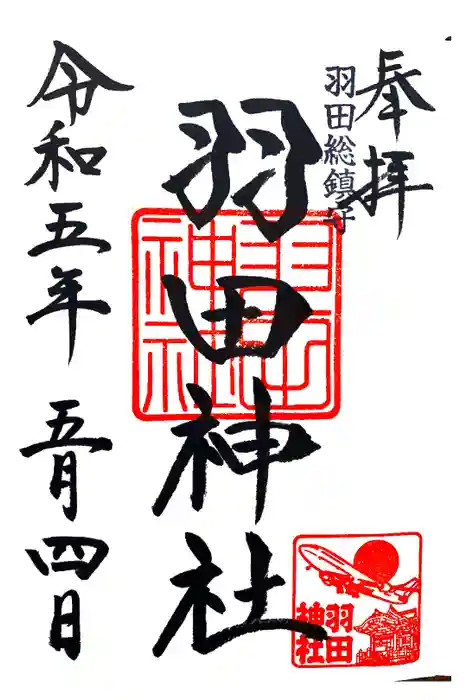 奉拝
羽田総鎮守
羽田神社
羽田
神社
令和五年 五月四日
羽田
神社